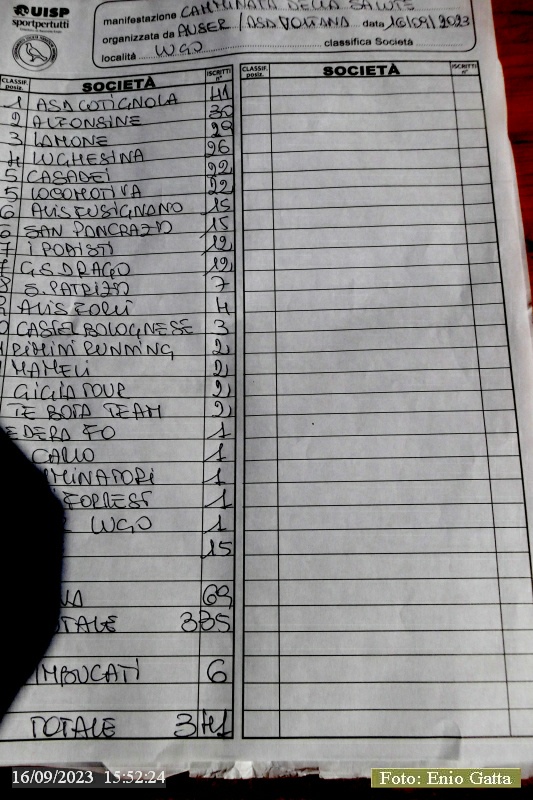 UISP
sportpertutti
manifestazione CAMMINATA DELLA SALUTE
organizzata da AUSER / ASA VOLTANA data 16/09/2023
località LUGO classifica Società
CLASSIF. posiz. SOCIETÀ ISCRITTI n° CLASSIF. posiz. SOCIETÀ ISCRITTI n°
1 ASA COTIGNOLA 41
2 ALFONSINE
3 LAMONE
4 LUGHESINA 26
5 CASADEI 22
5 LOCOMOTIVA 22
6 AVIS FUSIGNANO 15
6 SAN PANCRAZIO 15
7 I PODISTI 12
7 G.S. DRAGO 12
8 S. PATRIZIO 7
AVIS FORLI 4
CASTEL BOLOGNESE 3
RIMINI RUNNING 2
MAMELI 2
GIGLA TOUR 2
TE BOTA TEAM 2
EDERA FO 1
1
MINATORI 1
FORREST 1
LUGO 1
15
69
TALE 335
IMBUCATI 6
TOTALE 341
16/09/2023 15:52:24
Foto: Enio Gatta